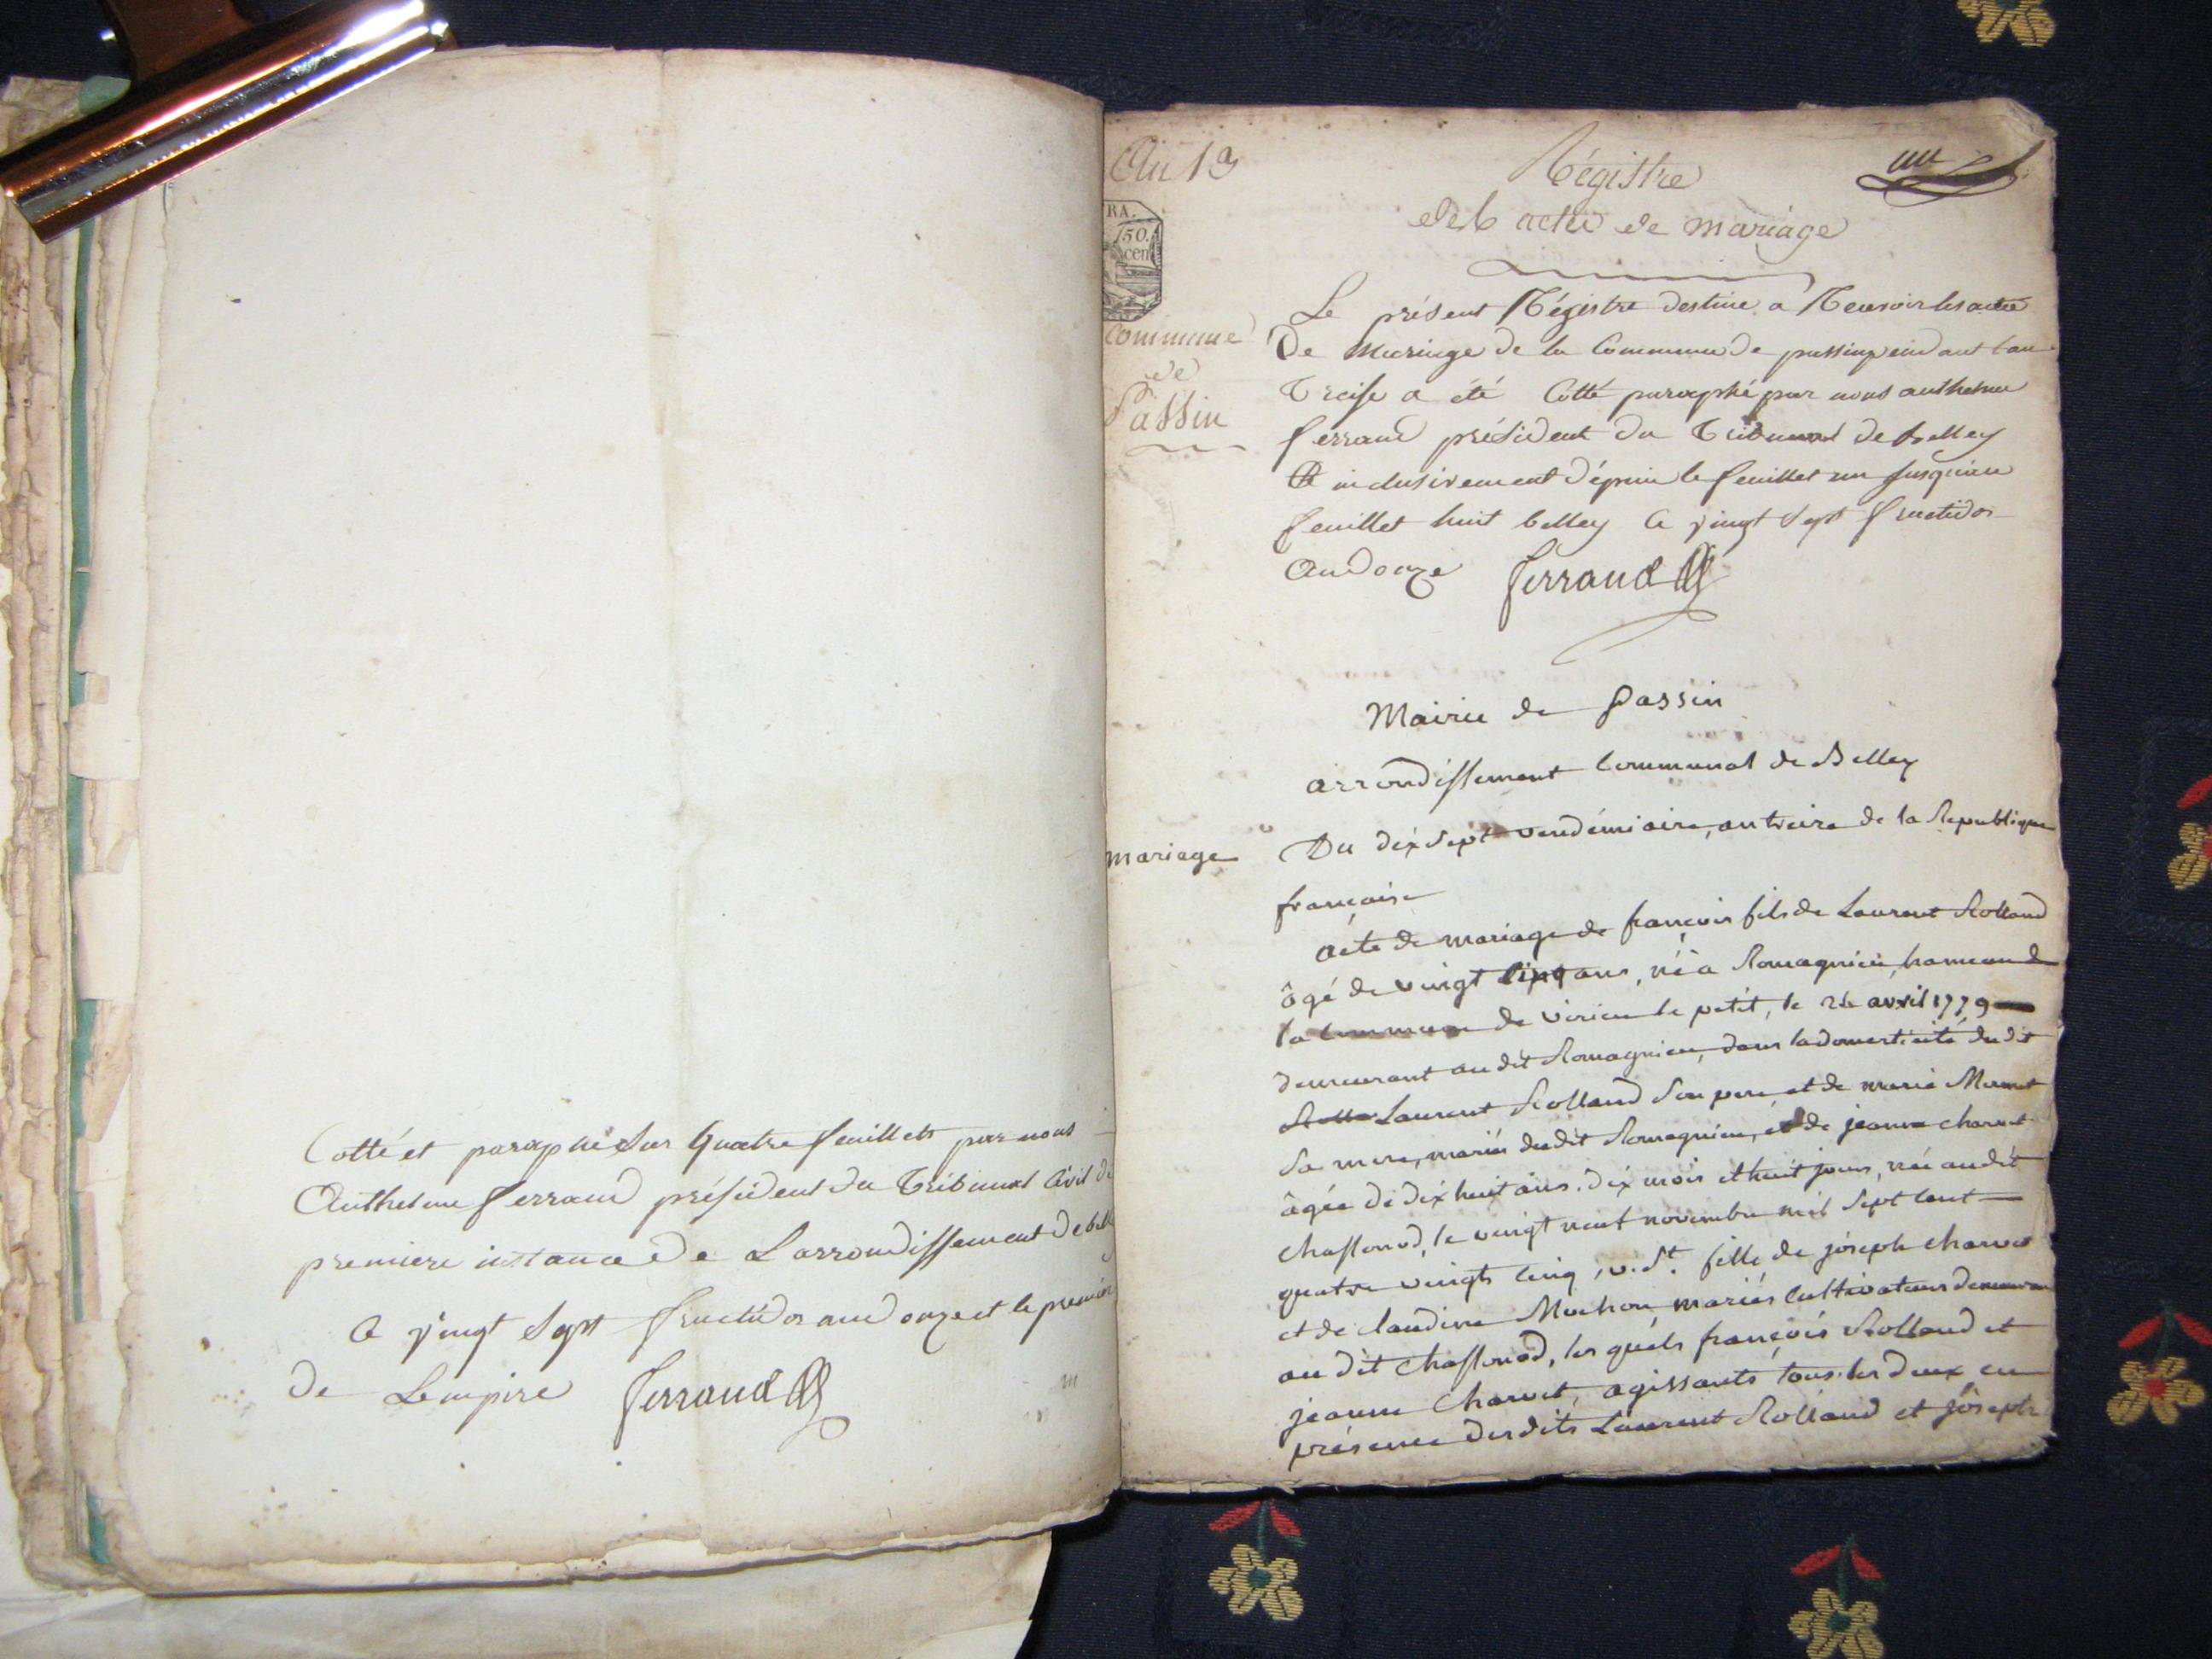 Cotté et paraphé Sur Quatre feuillets par nous
Anthelme ferrand président du Tribunal Civil de
premiere instance De Larrondissement De bell
le vingt Sept fructidor an douze et le premier
De Lempire ferrand
An 13
RA.
50.
cen
Commune
de
Passin
un
Régistre
des actes de mariage
Le présent Régistre destiné a Recevoir les actes
De Mariage de la Commune de passin pendant lan
Treise a été Cotté paraphé par nous anthelme
ferrand président du Tribunal de belley
inclusivement dépuis le feuillet un Jusquau
feuillet huit belley le vingt Sept fructidor
an douze ferrand
Mairie de Passin
arrondissement Communal de Belley
mariage
Du dix Sept vendémiaire, an treize de la Republique
française
acte de mariage de françois fils de Laurent Rolland
âgé de vingt cinq ans, né à Romagnieu, hameau de
la Commune de virieu le petit, le avril 1779
demeurant au dit Romagnieu, dans la domesticité du dit
Laurent Rolland Son pere, et de marie
Sa mere, mariés du dit Romagnieu, et de jeanne charvet
âgée de dix huit ans. dix mois et huit jours, née au dit
chassonod, le vingt neuf novembre mil Sept Cent
quatre vingts Cinq, v. St. fille de joseph charvet
et de Claudine Mochon, mariés Cultivateurs demeurans
au dit chassonod, les quels françois Rolland et
jeanne Charvet, agissants tous les deux en
présence des dits Laurent Rolland et joseph